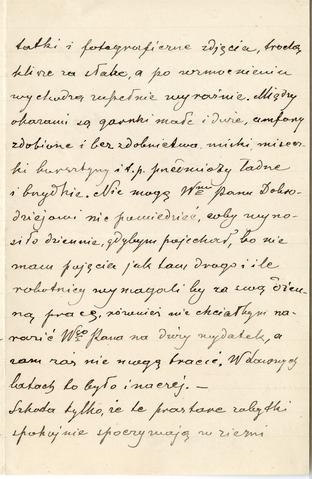 tatki i fotograficzne zdjęcia, trochę
klisze za słabe, a po wzmocnieniu
wychodzą zupełnie wyraźnie. Między
okazami są garnki małe i duże, amfory
zdobione i bez zdobnictwa, miski, misecz-
ki bursztyny i t. p. przedmioty ładne
i brzydkie. Nie mogę Wmu Panu Dobro-
dziejowi nie powiedzieć, coby wyno-
siło dziennie, gdybym pojechał, bo nie
mam pojęcia jak tam drogo i ile
robotnicy wymagaliby za swą dzien-
ną pracę, również nie chciałbym na-
razić Wgo Pana na duży wydatek, a
sam zaś nie mogę tracić. W dawnych
latach to było inaczej. —
Szkoda tylko, że te prastare zabytki
spokojnie spoczywają w ziemi